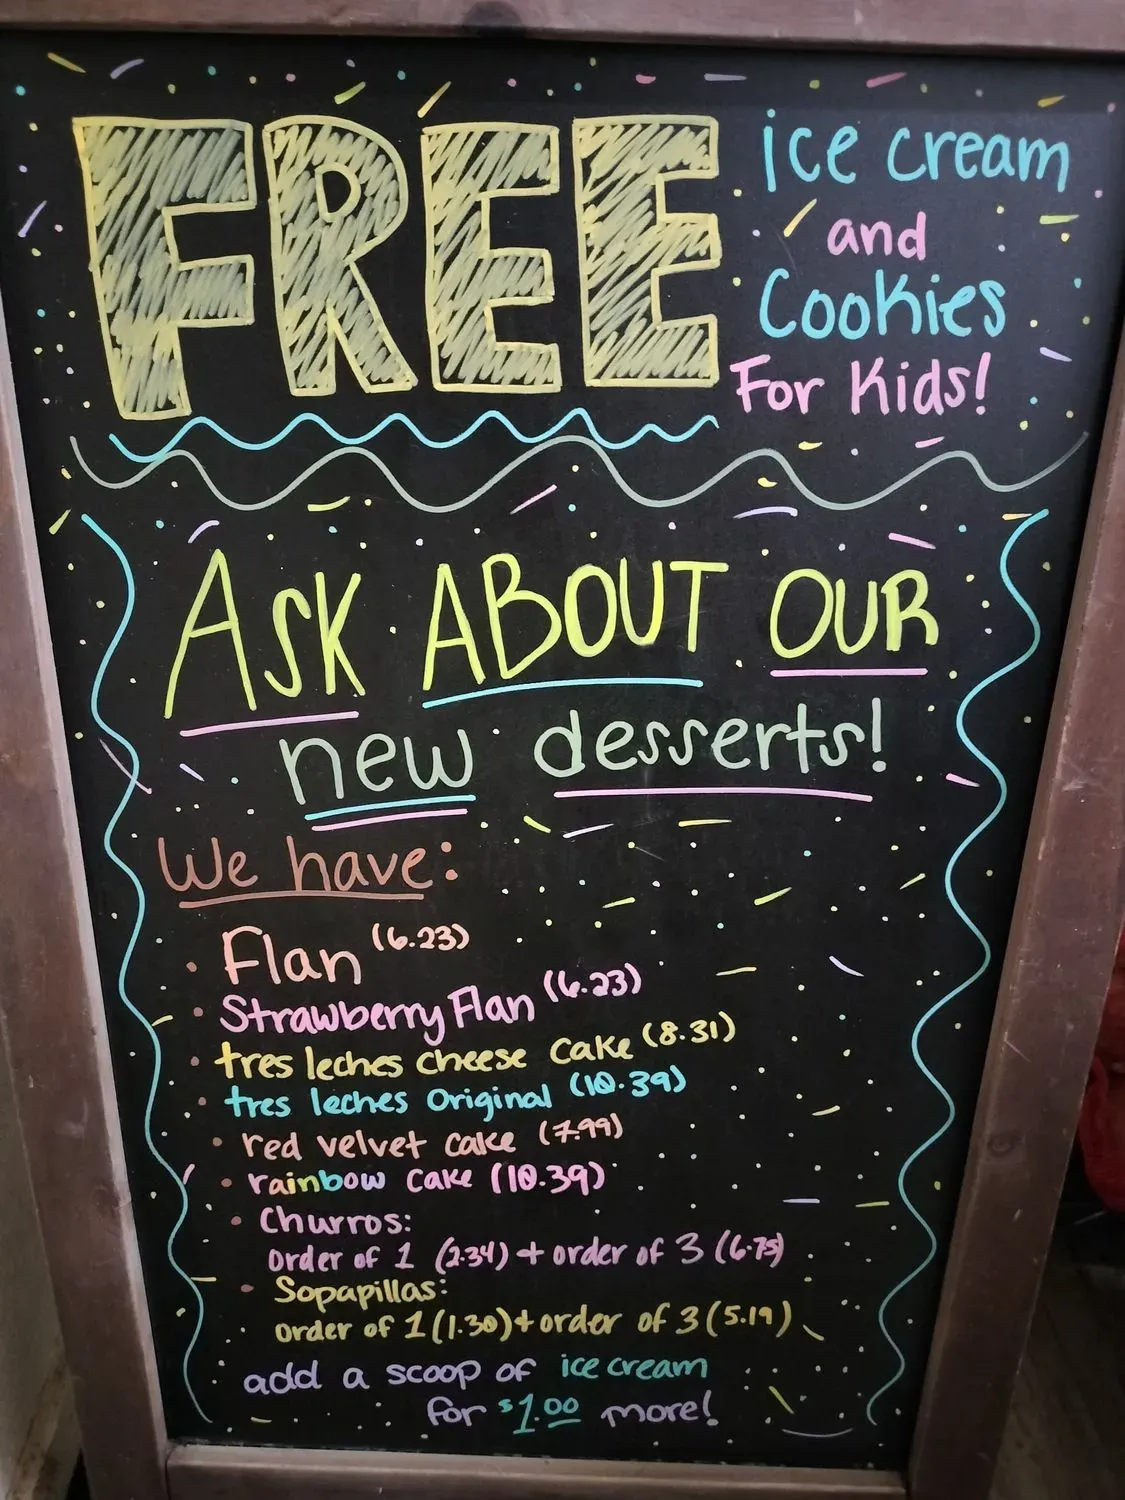 FREE
ice cream
and
Cookies
For Kids!
ASK ABOUT OUR
new desserts!
We have:
• Flan (6.23)
• Strawberry Flan (6.23)
• tres leches cheese cake (8.31)
• tres leches Original (10.39)
• red velvet cake (7.99)
• rainbow cake (10.39)
• Churros:
order of 1 (2.34) + order of 3 (6.75)
• Sopapillas:
order of 1 (1.30) + order of 3 (5.19)
add a scoop of ice cream
for $1.00 more!